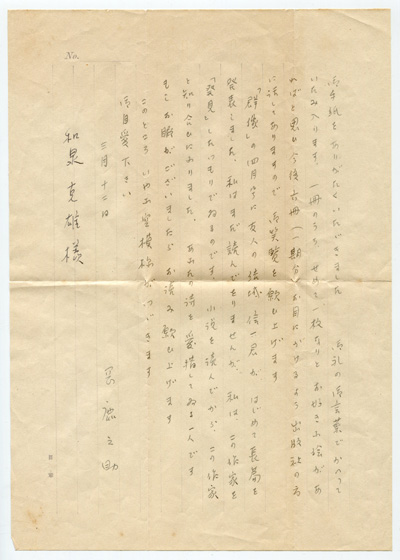 No.
御手紙をありがたくいただきました 御礼の御言葉でかへって
いたみ入ります、一冊のうち せめて一枚なりと お好きな絵があ
ればと思ひ 今後六冊(一期分)お目にかけるよう 出版社の方
に話してありますので 御笑覧を願ひ上げます
「群像」の四月号に友人の 信一君が、はじめて長篇を
発表しました、私はまだ読んでをりませんが、私は この作家を
「発見」したつもりでゐるのです、小説を読んでから、この作家
と知り合ひになりました、あなたの詩を愛惜してゐる一人です
もしお暇がございましたら お読み願ひ上げます
このところ いやな空模様がつづきます
御自愛下さい
三月十二日
之助
和泉克雄様